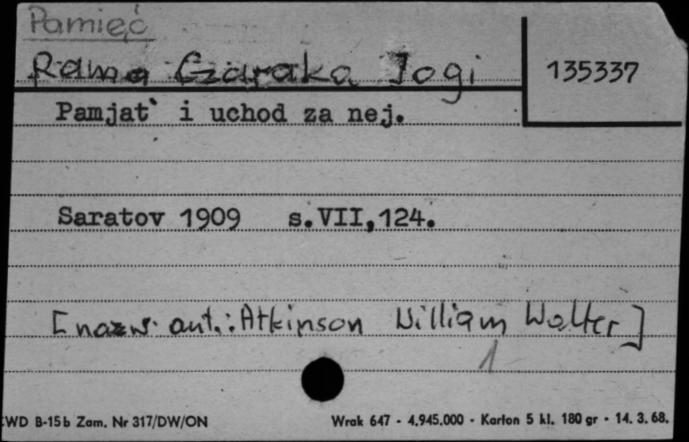 Pamięć
Rama Czaraka Jogi
135337
Pamjat` i uchod za nej.
Saratov 1909 s.VII,124.
[nazw. aut.: Atkinson William Walter]
1
CWD B-15b Zam. Nr 317/DW/ON
Wrak 647 - 4.945.000 - Karton 5 kl. 180 gr - 14. 3. 68.